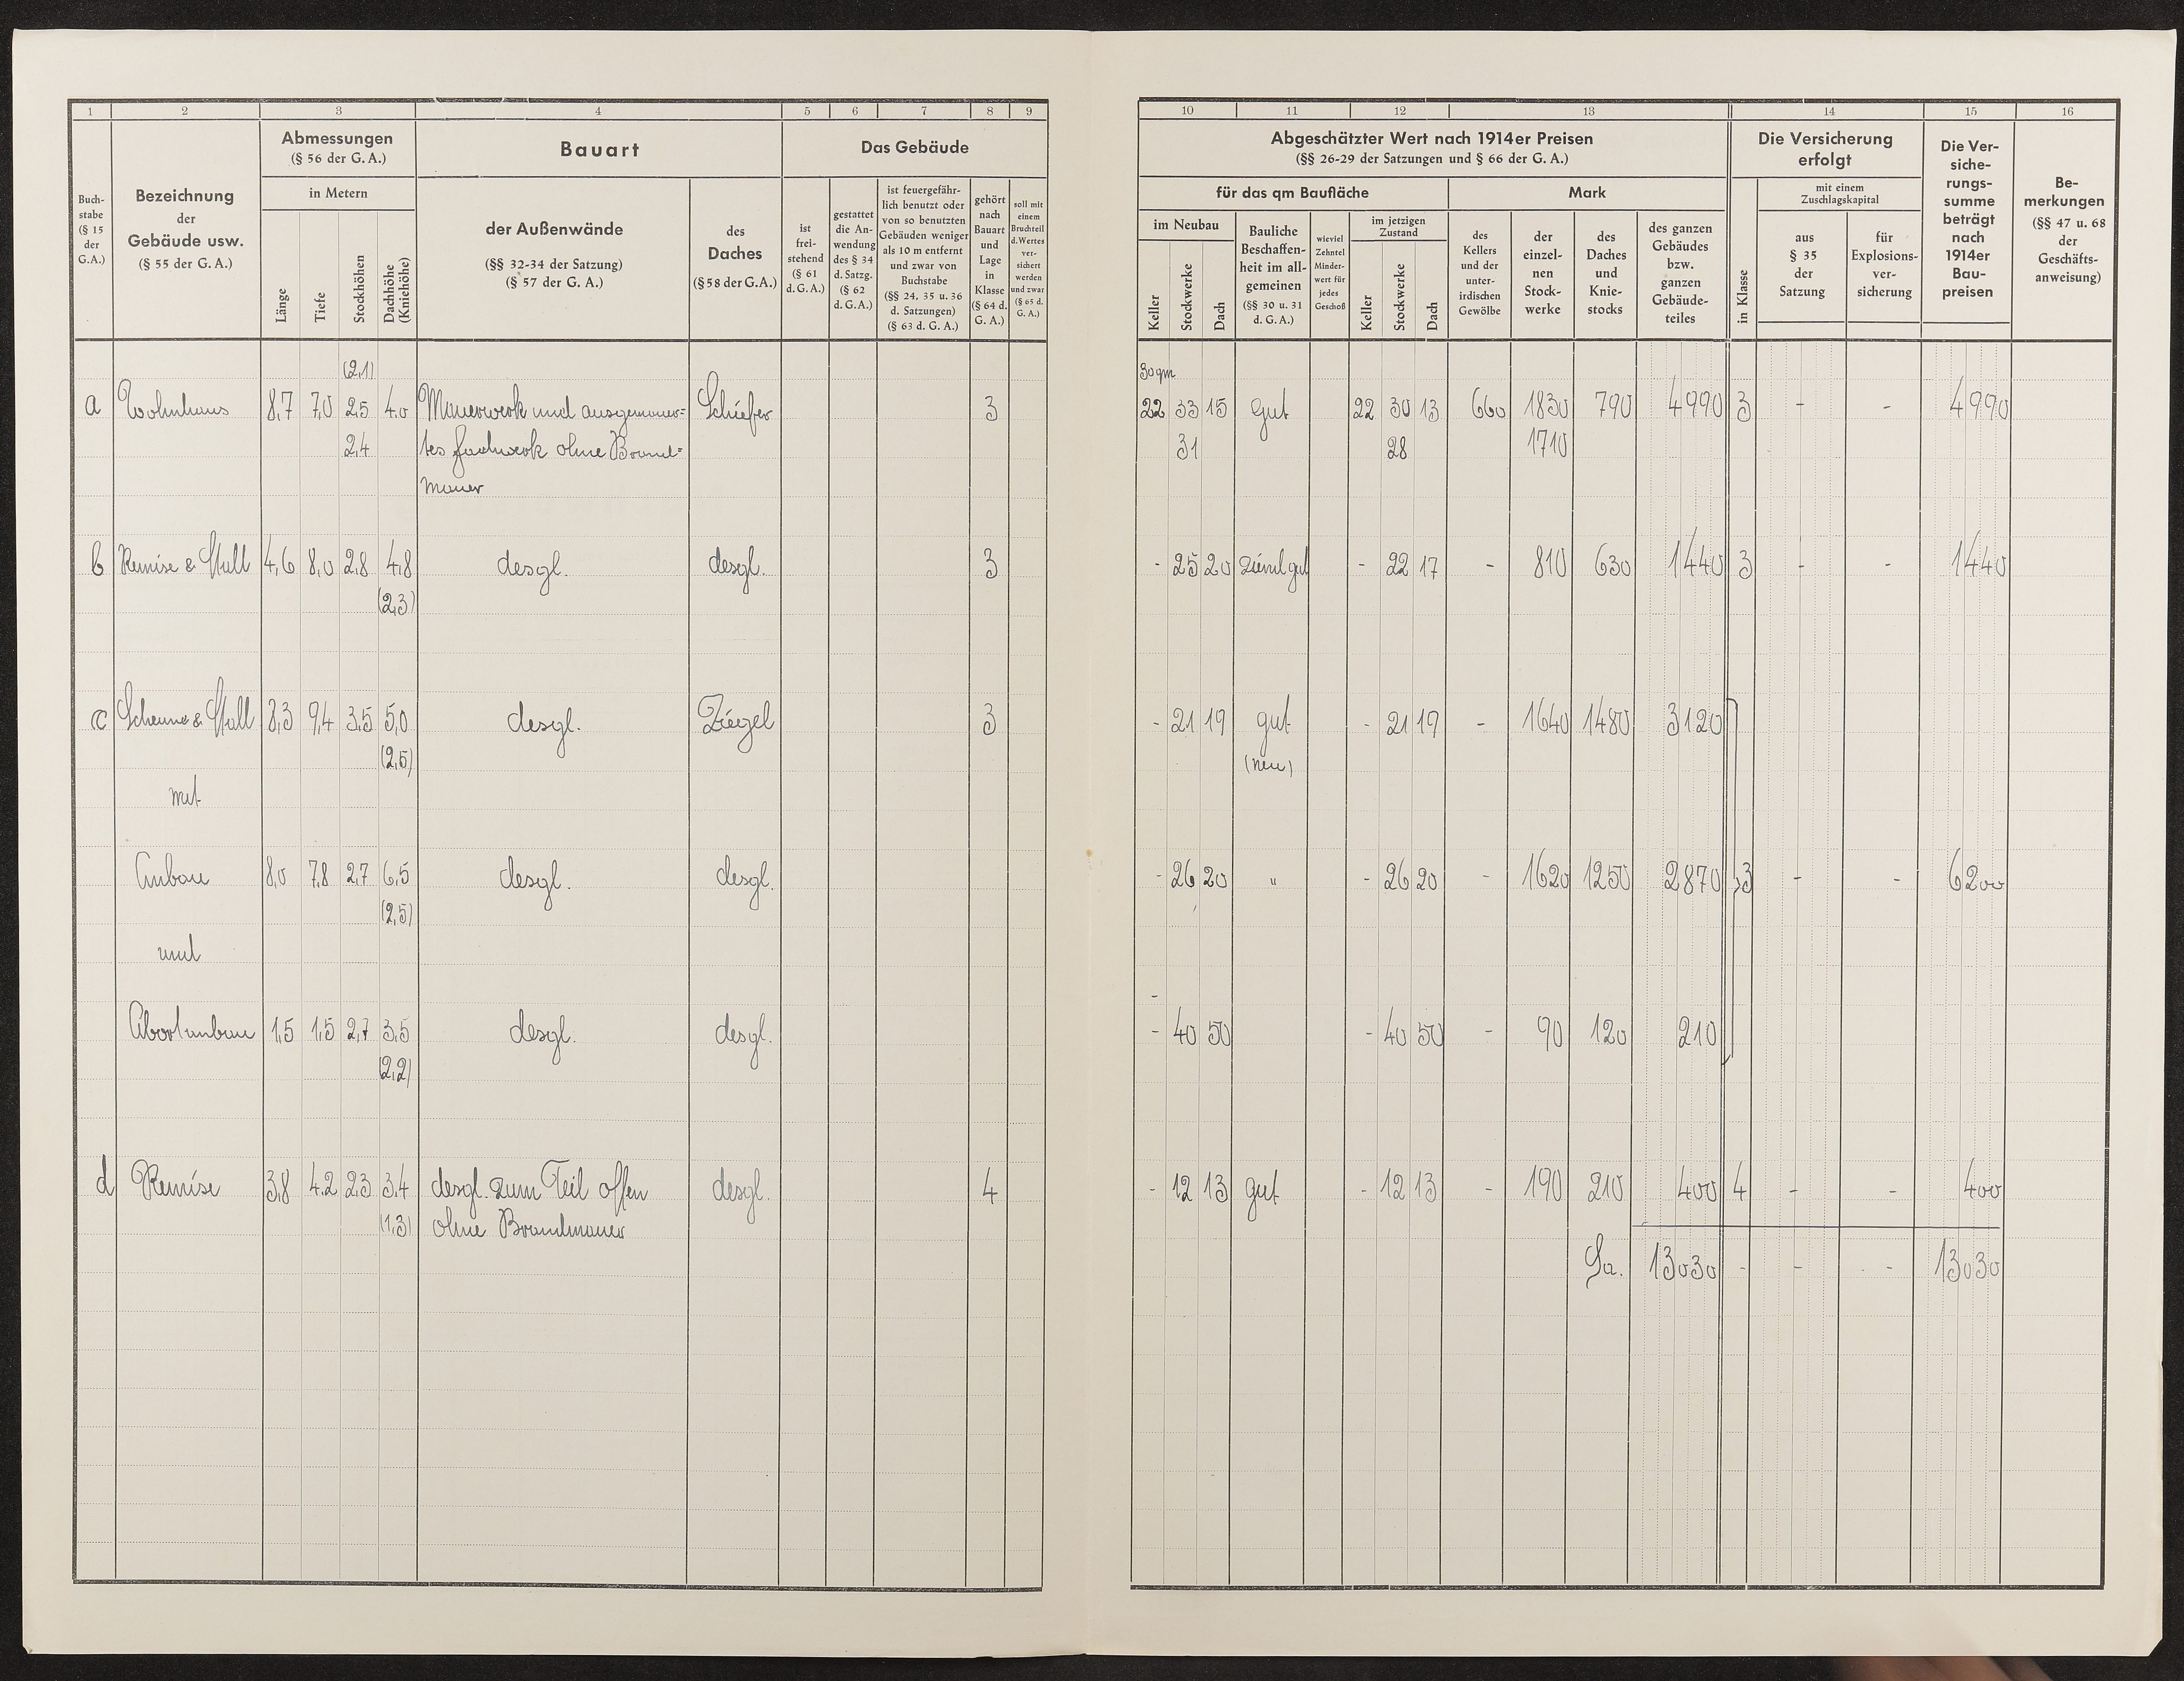 1 2 3 4 5 6 7 8 9
10 11 12 13 14 15 16
Buch-
stabe
(§ 15
der
G.A.)
Bezeichnung
der
Gebäude usw.
(§ 55 der G. A.)
Abmessungen
(§ 56 der G. A.)
in Metern
Länge
Tiefe
Stockhöhen
Dachhöhe
(Kniehöhe)
Bauart
der Außenwände
(§§ 32-34 der Satzung)
(§ 57 der G. A.)
des
Daches
(§ 58 der G.A.)
Das Gebäude
ist
frei-
stehend
(§ 61
d. G. A.)
gestattet
die An-
wendung
des § 34
d. Satzg.
(§ 62
d. G. A.)
ist feuergefähr-
lich benutzt oder
von so benutzten
Gebäuden weniger
als 10 m entfernt
und zwar von
Buchstabe
(§§ 24, 35 u. 36
d. Satzungen)
(§ 63 d. G. A.)
gehört
nach
Bauart
und
Lage
in
Klasse
(§ 64 d.
G. A.)
soll mit
einem
Bruchteil
d. Wertes
ver-
sichert
werden
und zwar
(§ 65 d.
G. A.)
Abgeschätzter Wert nach 1914er Preisen
(§§ 26-29 der Satzungen und § 66 der G. A.)
für das qm Baufläche
im Neubau
Keller
Stockwerke
Dach
Bauliche
Beschaffen-
heit im all-
gemeinen
(§§ 30 u. 31
d. G. A.)
wieviel
Zehntel
Minder-
wert für
jedes
Geschoß
im jetzigen
Zustand
Keller
Stockwerke
Dach
Mark
des
Kellers
und der
unter-
irdischen
Gewölbe
der
einzel-
nen
Stock-
werke
des
Daches
und
Knie-
stocks
des ganzen
Gebäudes
bzw.
ganzen
Gebäude-
teiles
Die Versicherung
erfolgt
in Klasse
mit einem
Zuschlagskapital
aus
§ 35
der
Satzung
für
Explosions-
ver-
sicherung
Die Ver-
siche-
rungs-
summe
beträgt
nach
1914er
Bau-
preisen
Be-
merkungen
(§§ 47 u. 68
der
Geschäfts-
anweisung)
(2,1) 30 qm
a Wohnhaus 8,7 7,0 2,5 4,0 Mauerwerk und ausgemauer= Schiefer 3 22 33 15 Gut 22 30 13 660 1830 790 4990 3 - - 4990
2,4 tes Fachwerk ohne Brand= 31 28 1710
mauer
b Remise & Stall 4,6 8,0 2,8 4,8 desgl. desgl. 3 - 25 20 Zieml gut - 22 17 - 810 630 1440 3 - - 1440
(2,3)
c Scheune & Stall 8,3 9,4 3,5 5,0 desgl. Ziegel 3 - 21 19 gut - 21 19 - 1640 1480 3120
(2,5) (neu)
mit
Anbau 8,0 7,8 2,7 6,5 desgl. desgl. - 26 20 " - 26 20 - 1620 1250 2870 3 - - 6200
(2,5)
und
-
Abortanbau 1,5 1,5 2,7 3,5 desgl. desgl. - 40 50 - 40 50 - 90 120 210
(2,2)
d Remise 3,8 4,2 2,3 3,4 desgl. zum Teil offen desgl. 4 - 12 13 gut - 12 13 - 190 210 400 4 - - 400
(1,3) ohne Brandmauer
Sa. 13030 - - - 13030